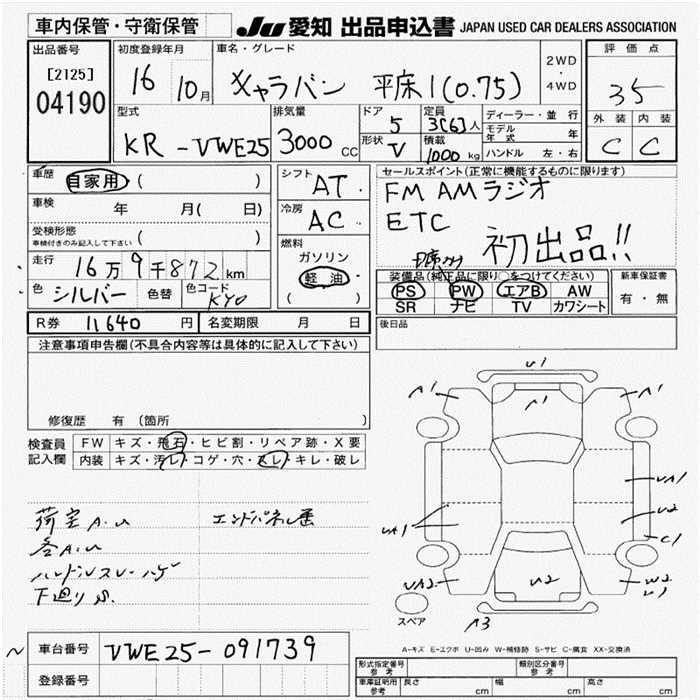 車内保管・守衛保管
JU 愛知 出品申込書 JAPAN USED CAR DEALERS ASSOCIATION
出品番号
[2125]
04190
初度登録年月
16 10月
車名・グレード
キャラバン 平床1(0.75)
2WD
・
4WD
評価点
35
外装 内装
C C
型式
KR-VWE25
排気量
3000 CC
ドア
5
形状
V
定員
3(6)人
積載
1000 kg
ディーラー・並行
モデル年式 年
ハンドル 左・右
車歴
自家用 ( )
車検
年 月( 日)
受検形態
車検付きのみ記入して下さい ( )
走行
16万9千872km
色 シルバー 色替 色コード KYO
シフト
AT
冷房
AC
燃料
ガソリン
軽油
( )
セールスポイント(正常に機能するものに限ります)
FM AMラジオ
ETC
初出品!!
装備品(純正品に限り○をつけてください)
PS PW エアB AW
SR ナビ TV カワシート
新車保証書
有・無
R券 11640 円 名変期限 月 日
後日品
注意事項申告欄(不具合内容等は具体的に記入して下さい)
修復歴 有 (箇所 )
検査員
記入欄
FW キズ・飛石・ヒビ割・リペア跡・X要
内装 キズ・汚レ・コゲ・穴・スレ・キレ・破レ
荷室A.U エンドパネル歪
各A.U
ハンドルスレ・ハゲ
下廻りS.
U1
A1 A1 A1
UA1
UA1 U2
C1
UA2 U2 W2
U1
A3
スペア
A-キズ E-エクボ U-凹み W-補修跡 S-サビ C-腐食 XX-交換済
車台番号 VWE25-091739
登録番号
形式指定番号
参考
類別区分番号
参考
車庫証明用
参考
長さ cm 幅 cm 高さ cm